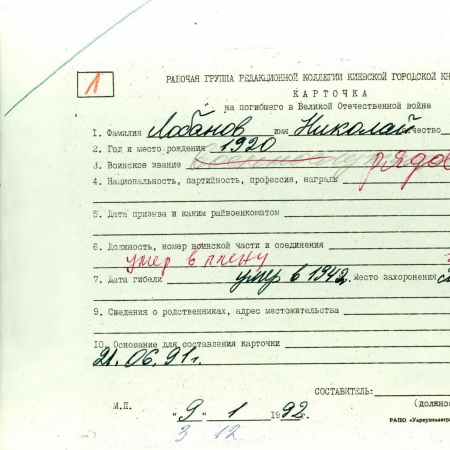 1
РАБОЧАЯ ГРУППА РЕДАКЦИОННОЙ КОЛЛЕГИИ КИЕВСКОЙ ГОРОДСКОЙ КН
КАРТОЧКА
на погибшего в Великой Отечественной войне
1. Фамилия Лобанов имя Николай отчество
2. Год и место рождения 1920
3. Воинское звание рядов
4. Национальность, партийность, профессия, награды
5. Дата призыва и каким райвоенкоматом
6. Должность, номер воинской части и соединения
умер в плену
7. Дата гибели умер в 1942 Место захоронения
9. Сведения о родственниках, адрес местожительства
10. Основание для составления карточки
21.06.91г.
СОСТАВИТЕЛЬ:
(должнос
М.П. "9" 1 1992
3 12
РАПО «Укрвузполигр